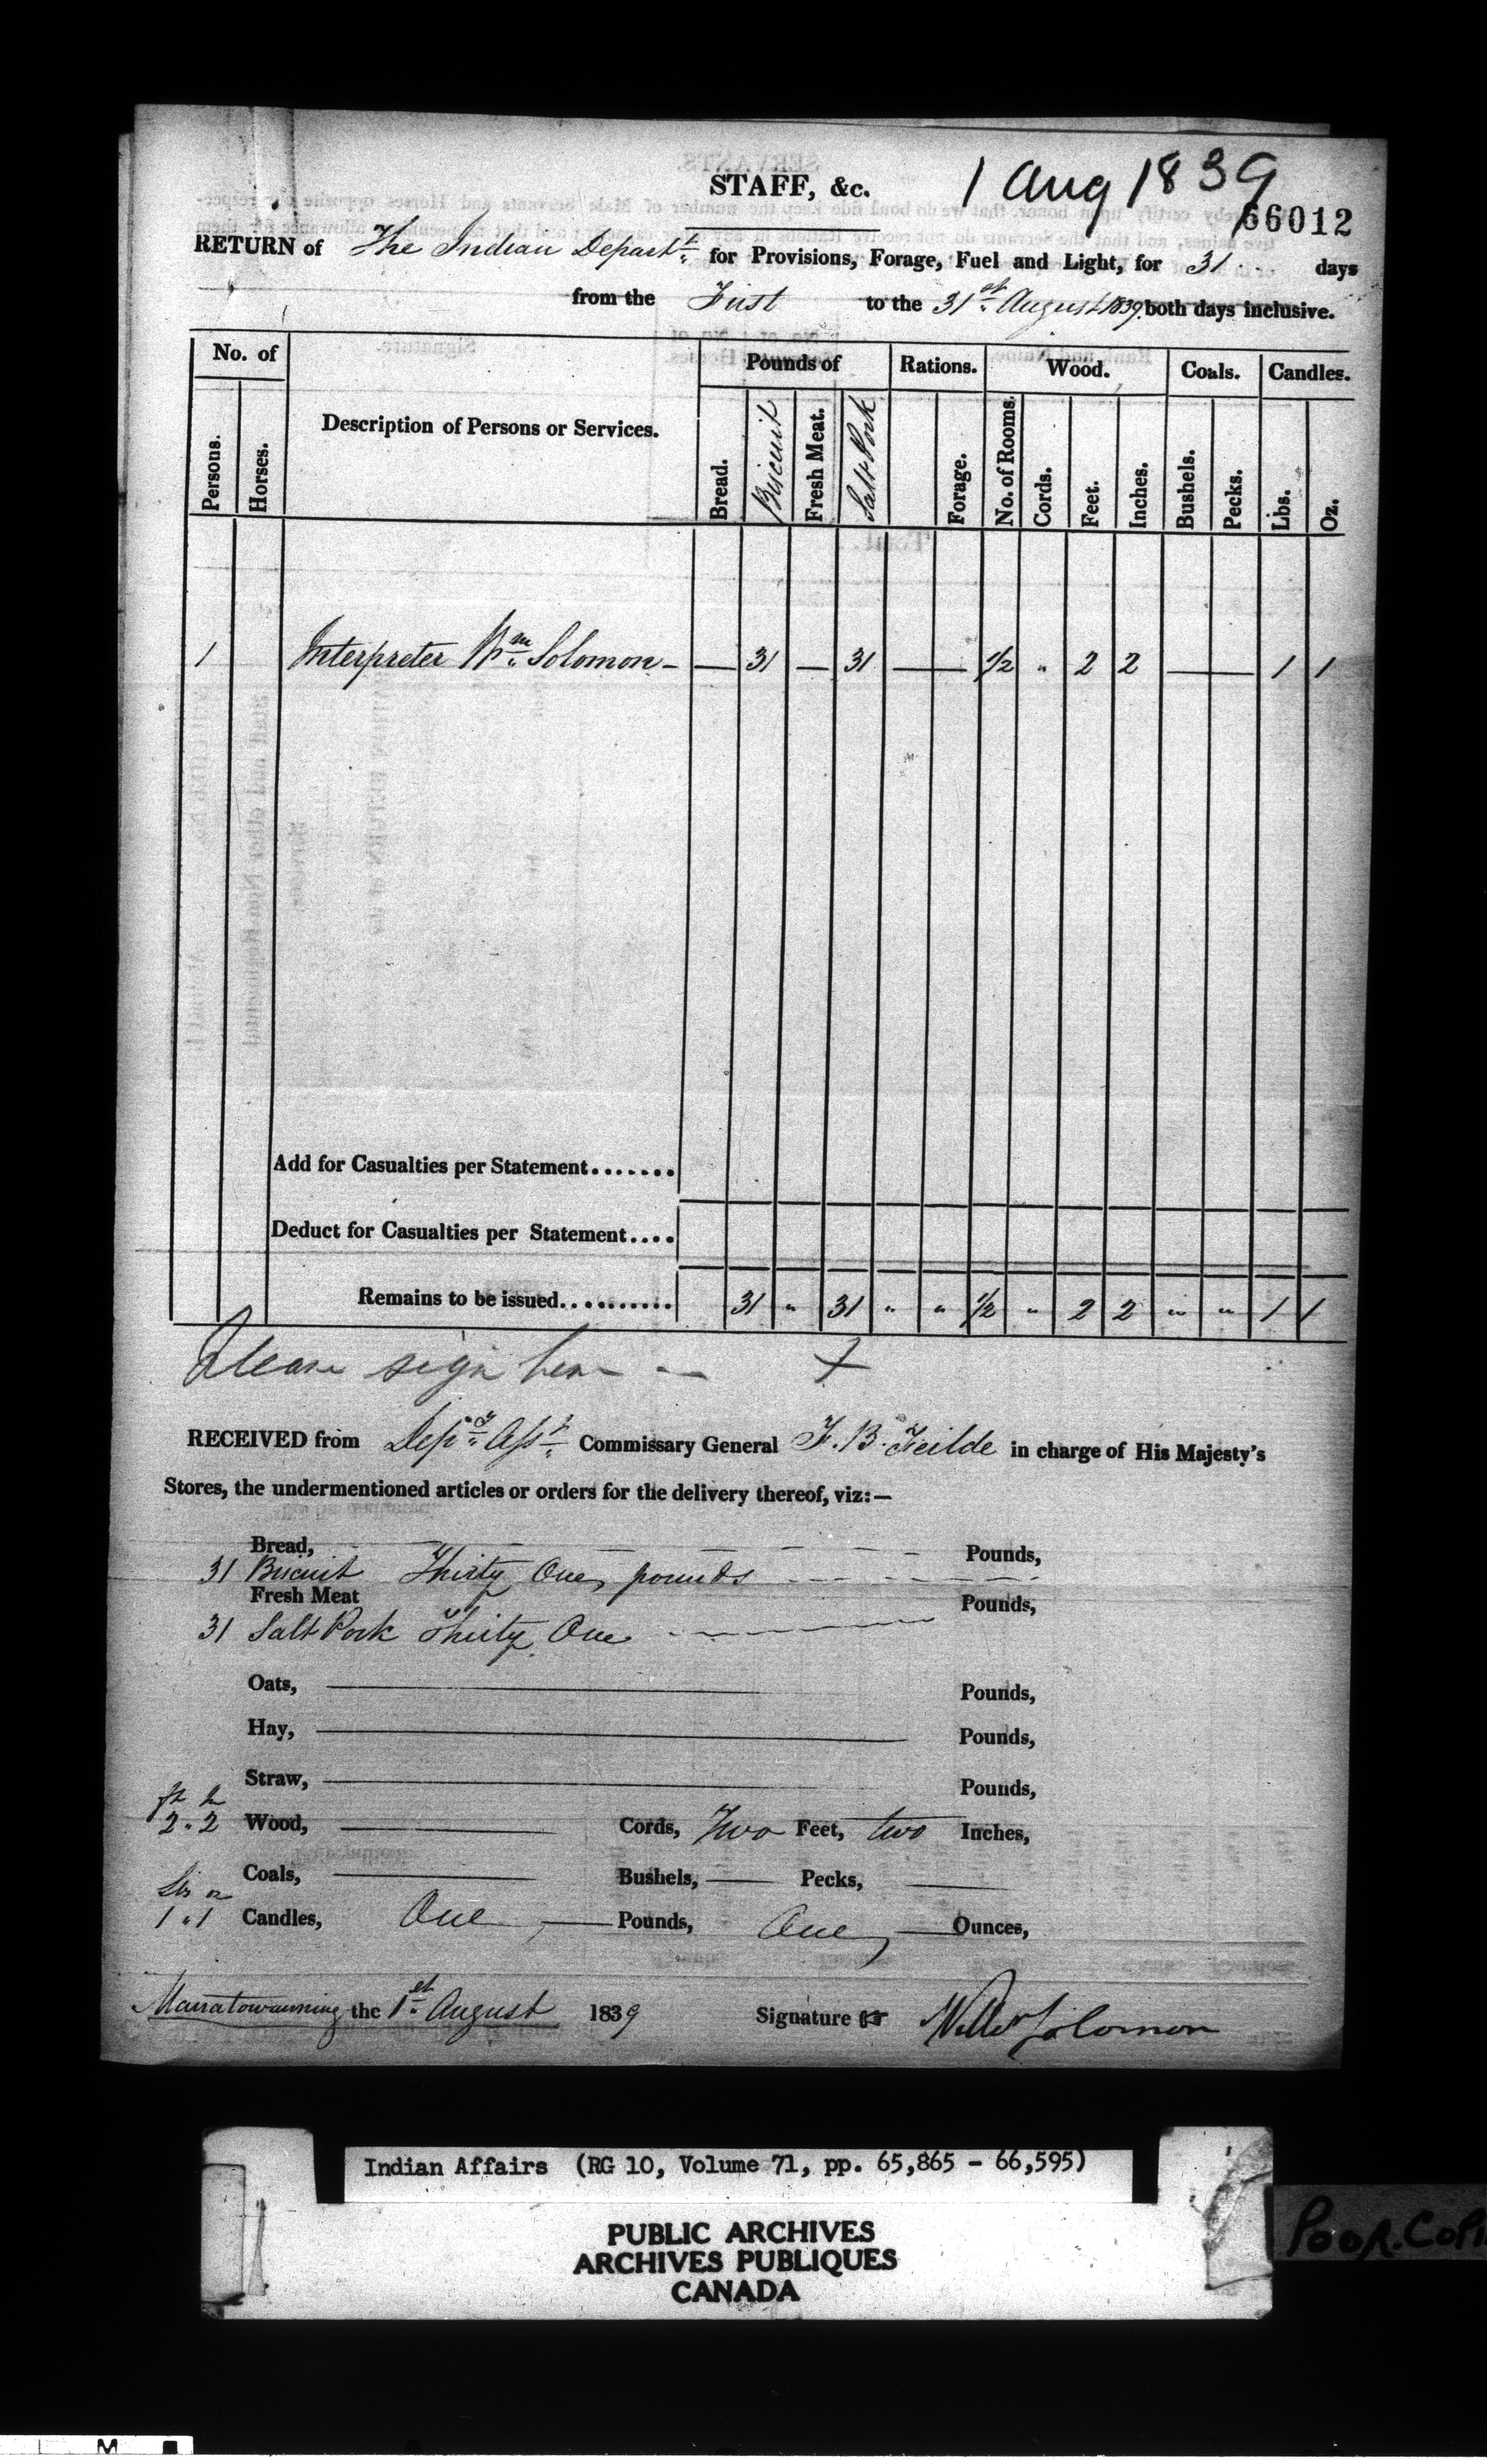 1 Aug 1839
STAFF, &c.
66012
RETURN of The Indian Depart.t for Provisions, Forage, Fuel and Light, for 31 days
from the First to the 31st August 1839 both days inclusive.
No. of
Persons. Horses. Description of Persons or Services.
Pounds of Rations. Wood. Coals. Candles.
Bread. Biscuit Fresh Meat. Salt Pork Forage. No. of Rooms. Cords. Feet. Inches. Bushels. Pecks. Lbs. Oz.
1 Interpreter Wm Solomon - — 31 — 31 — 1/2 " 2 2 — 1 1
Add for Casualties per Statement.......
Deduct for Casualties per Statement....
Remains to be issued.......... 31 " 31 " " 1/2 " 2 2 " " 1 1
Please sign here -- X
RECEIVED from Dep.y Ass.t Commissary General F. B. Feilde in charge of His Majesty's
Stores, the undermentioned articles or orders for the delivery thereof, viz:—
Bread, Pounds,
31 Biscuit Thirty One pounds
Fresh Meat Pounds,
31 Salt Pork Thirty One
Oats, Pounds,
Hay, Pounds,
Straw, Pounds,
ft in
2 " 2 Wood, Cords, Two Feet, two Inches,
Coals, Bushels, Pecks,
lbs oz
1 " 1 Candles, One Pounds, One Ounces,
Manatowanning the 1st August 1839 Signature ☞ Willm Solomon
Indian Affairs (RG 10, Volume 71, pp. 65,865 - 66,595)
PUBLIC ARCHIVES
ARCHIVES PUBLIQUES
CANADA
POOR.COPI
M